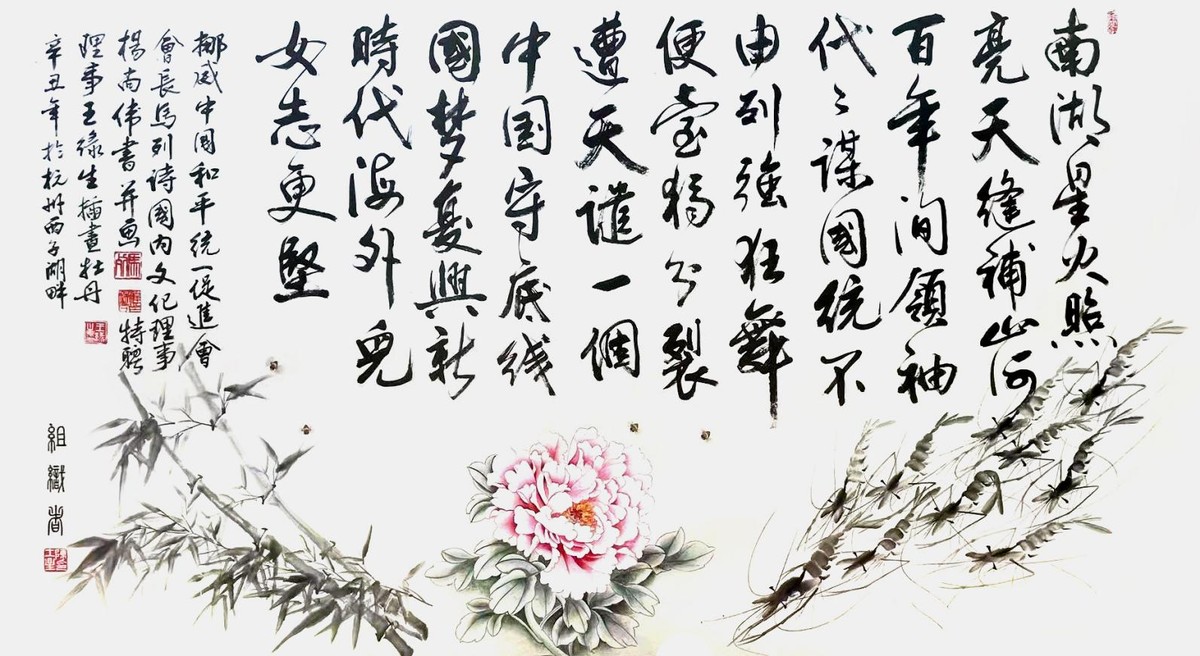 南湖星火照
亮天缝補山河
百年间領袖
代〻謀國統不
由列強狂舞
便臺獨分裂
遭天譴一個
中国守底线
國梦复興新
時代海外兒
女志更堅
挪威中国和平统一促進會
會長馬列诗國内文化理事
楊尚伟書并画 特聘
理事王緑生插畫牡丹
辛丑年於杭州西子湖畔
組織者